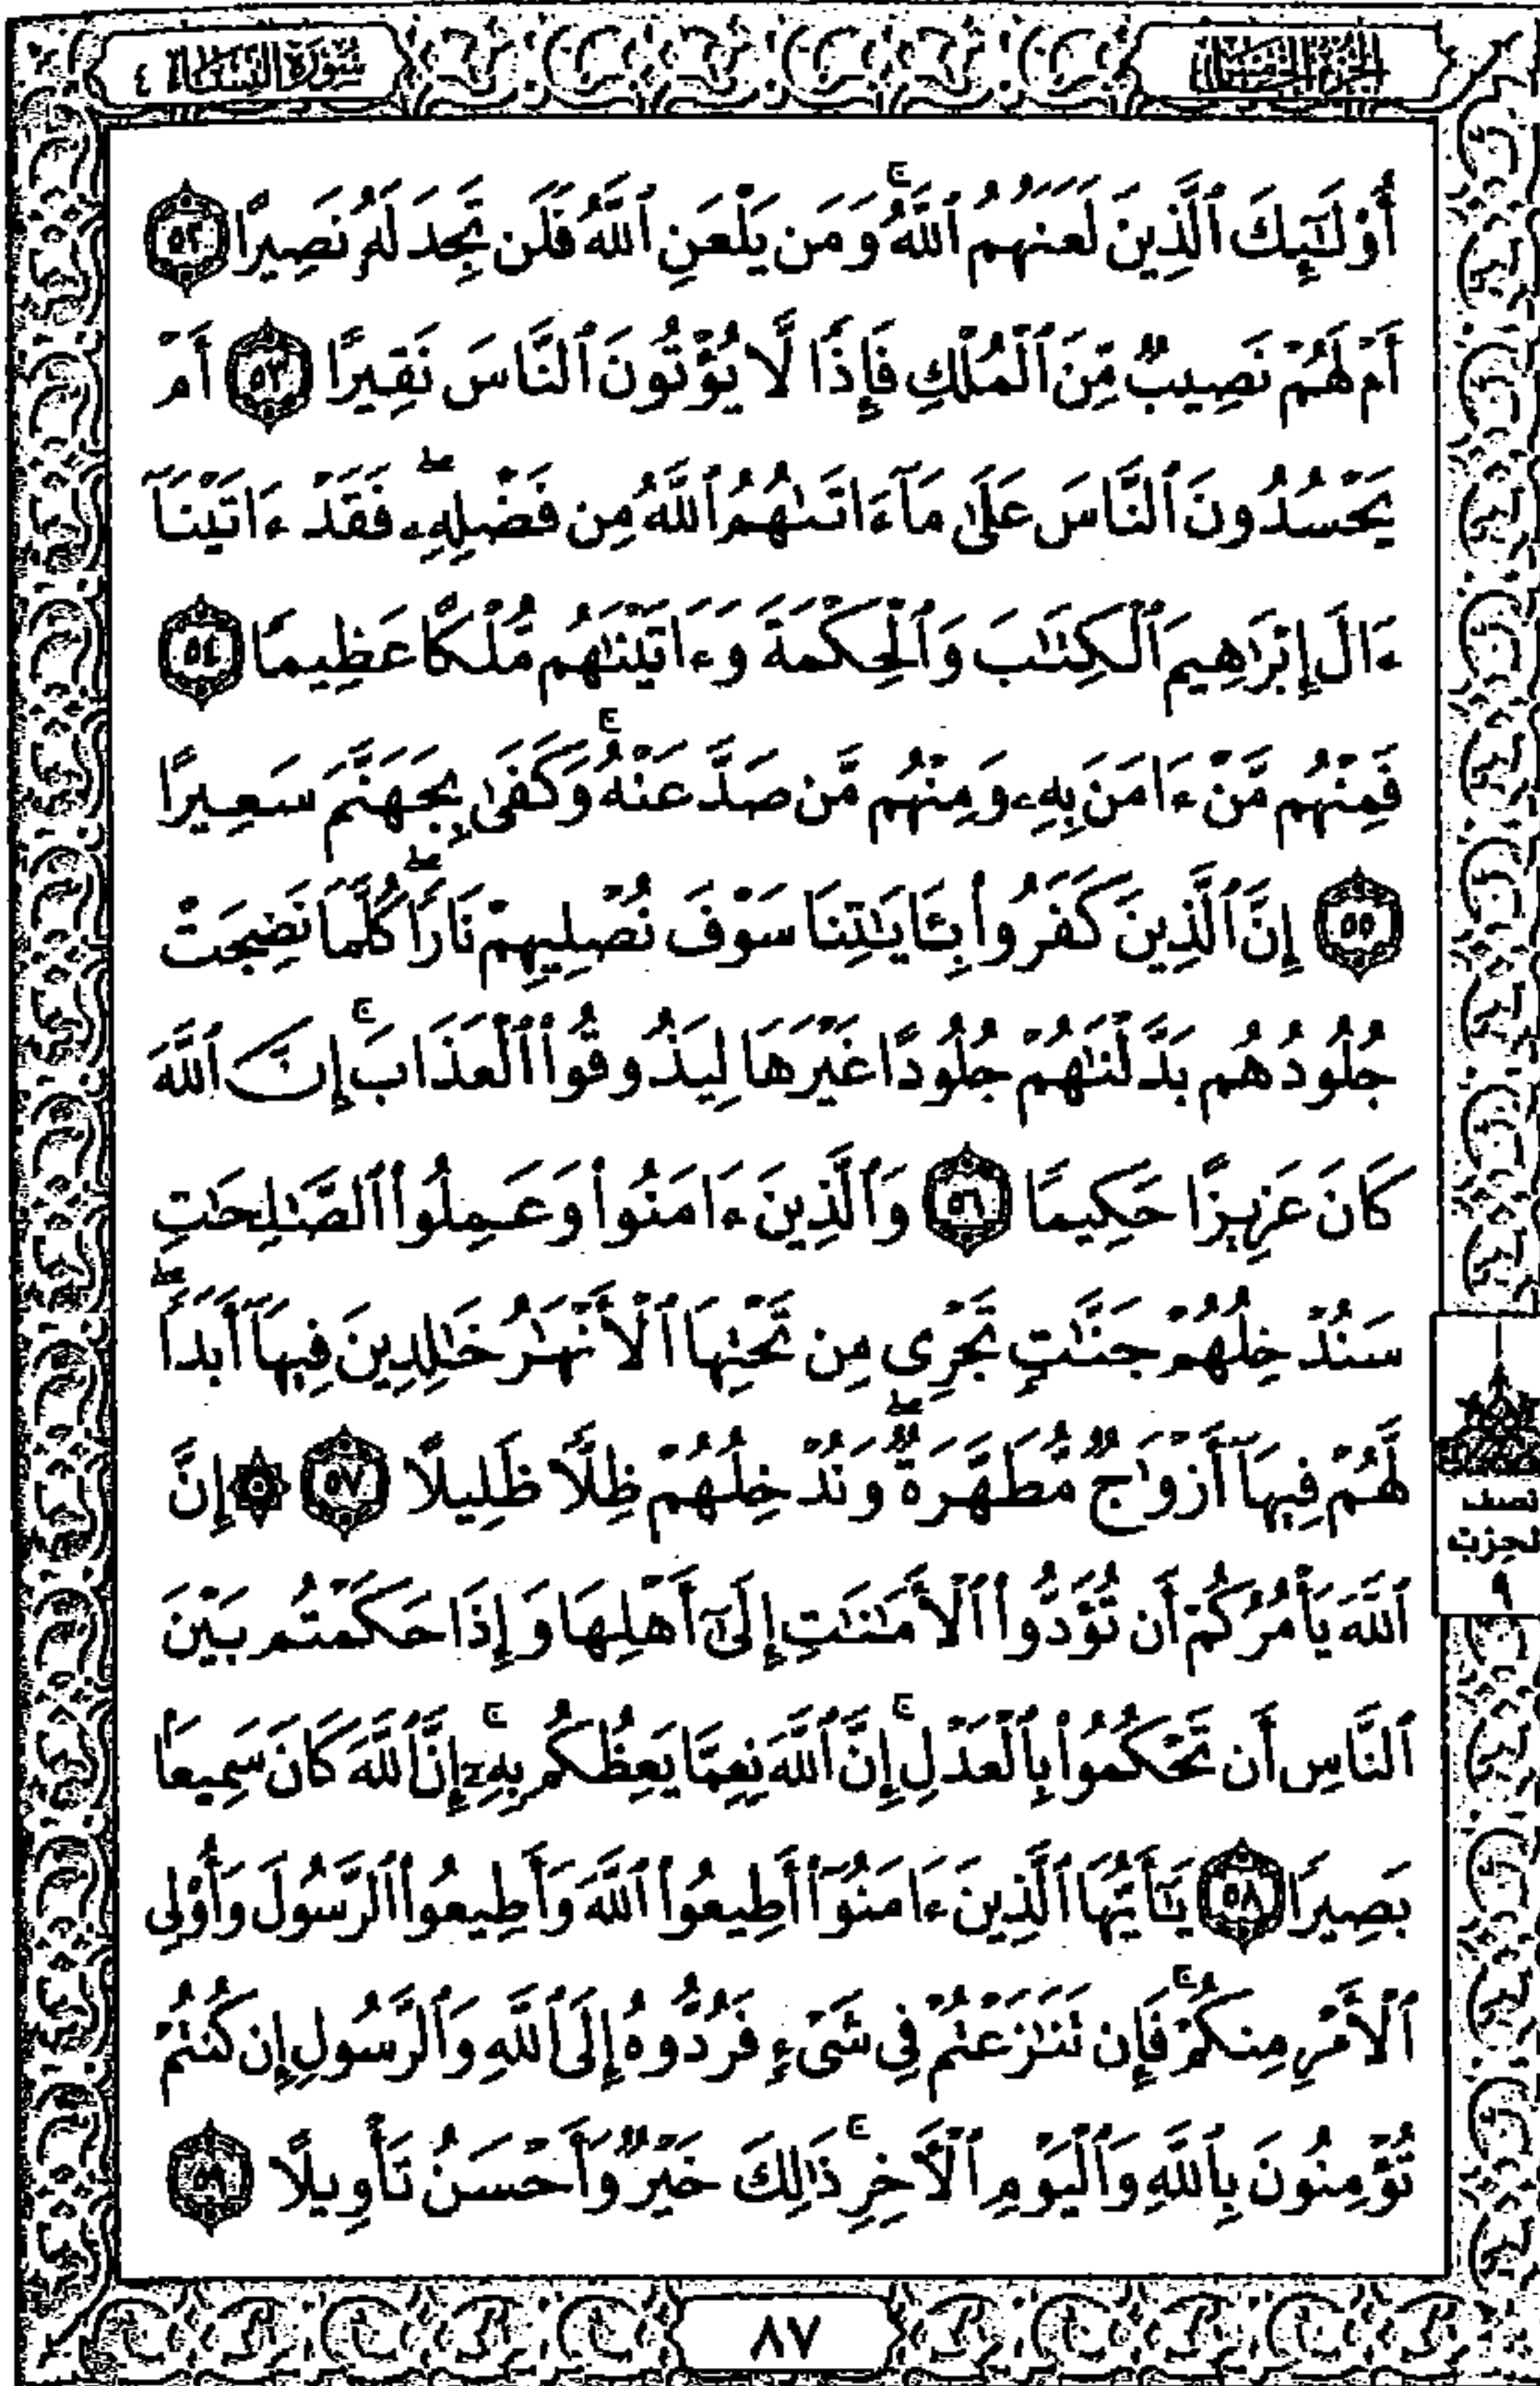 سُورَةُ النِّسَاءِ ٤
أُو۟لَـٰٓئِكَ ٱلَّذِينَ لَعَنَهُمُ ٱللَّهُ ۖ وَمَن يَلْعَنِ ٱللَّهُ فَلَن تَجِدَ لَهُۥ نَصِيرًا ٥٢
أَمْ لَهُمْ نَصِيبٌ مِّنَ ٱلْمُلْكِ فَإِذًا لَّا يُؤْتُونَ ٱلنَّاسَ نَقِيرًا ٥٣ أَمْ
يَحْسُدُونَ ٱلنَّاسَ عَلَىٰ مَآ ءَاتَىٰهُمُ ٱللَّهُ مِن فَضْلِهِۦ ۖ فَقَدْ ءَاتَيْنَآ
ءَالَ إِبْرَٰهِيمَ ٱلْكِتَـٰبَ وَٱلْحِكْمَةَ وَءَاتَيْنَـٰهُم مُّلْكًا عَظِيمًا ٥٤
فَمِنْهُم مَّنْ ءَامَنَ بِهِۦ وَمِنْهُم مَّن صَدَّ عَنْهُ ۚ وَكَفَىٰ بِجَهَنَّمَ سَعِيرًا
٥٥ إِنَّ ٱلَّذِينَ كَفَرُوا۟ بِـَٔايَـٰتِنَا سَوْفَ نُصْلِيهِمْ نَارًا ۖ كُلَّمَا نَضِجَتْ
جُلُودُهُم بَدَّلْنَـٰهُمْ جُلُودًا غَيْرَهَا لِيَذُوقُوا۟ ٱلْعَذَابَ ۚ إِنَّ ٱللَّهَ
كَانَ عَزِيزًا حَكِيمًا ٥٦ وَٱلَّذِينَ ءَامَنُوا۟ وَعَمِلُوا۟ ٱلصَّـٰلِحَـٰتِ
سَنُدْخِلُهُمْ جَنَّـٰتٍ تَجْرِى مِن تَحْتِهَا ٱلْأَنْهَـٰرُ خَـٰلِدِينَ فِيهَآ أَبَدًا ۖ
لَّهُمْ فِيهَآ أَزْوَٰجٌ مُّطَهَّرَةٌ ۖ وَنُدْخِلُهُمْ ظِلًّا ظَلِيلًا ٥٧ ۞ إِنَّ
ٱللَّهَ يَأْمُرُكُمْ أَن تُؤَدُّوا۟ ٱلْأَمَـٰنَـٰتِ إِلَىٰٓ أَهْلِهَا وَإِذَا حَكَمْتُم بَيْنَ
ٱلنَّاسِ أَن تَحْكُمُوا۟ بِٱلْعَدْلِ ۚ إِنَّ ٱللَّهَ نِعِمَّا يَعِظُكُم بِهِۦٓ ۗ إِنَّ ٱللَّهَ كَانَ سَمِيعًۢا
بَصِيرًا ٥٨ يَـٰٓأَيُّهَا ٱلَّذِينَ ءَامَنُوٓا۟ أَطِيعُوا۟ ٱللَّهَ وَأَطِيعُوا۟ ٱلرَّسُولَ وَأُو۟لِى
ٱلْأَمْرِ مِنكُمْ ۖ فَإِن تَنَـٰزَعْتُمْ فِى شَىْءٍ فَرُدُّوهُ إِلَى ٱللَّهِ وَٱلرَّسُولِ إِن كُنتُمْ
تُؤْمِنُونَ بِٱللَّهِ وَٱلْيَوْمِ ٱلْـَٔاخِرِ ۚ ذَٰلِكَ خَيْرٌ وَأَحْسَنُ تَأْوِيلًا ٥٩
نصف
الحزب
٩
٨٧